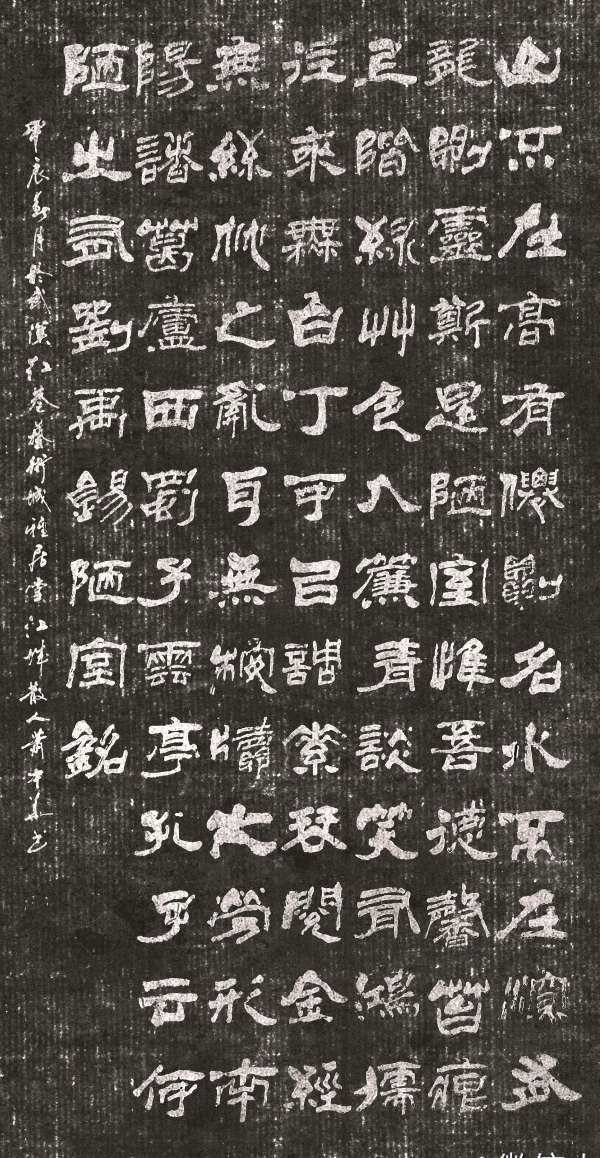 山不在高有僊則名水不在深有
龍則靈斯是陋室惟吾德馨苔痕
上階綠艸色入簾青談笑有鴻儒
往來無白丁可以調素琴閱金經
無絲竹之亂耳無案牘之勞形南
陽諸葛廬西蜀子雲亭孔子云何
陋之有劉禹錫陋室銘
甲辰春月於武漢红巷藝術城雅居堂江城散人萧中书